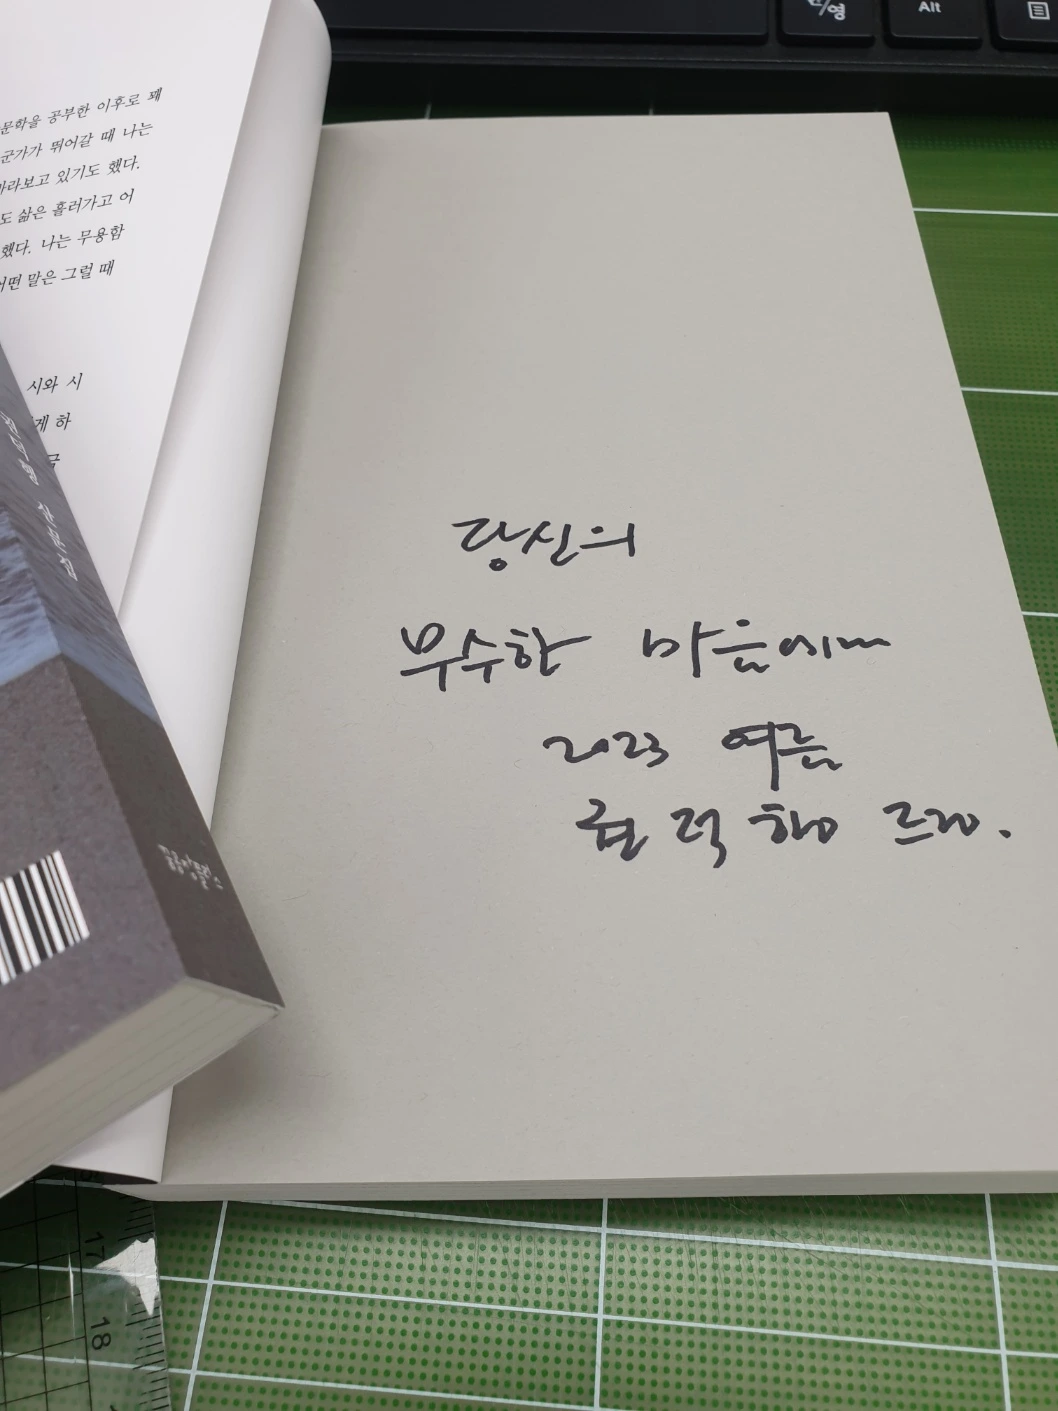 문학을 공부한 이후로 꽤
군가가 뛰어갈 때 나는
바라보고 있기도 했다.
도 삶은 흘러가고 어
했다. 나는 무용함
어떤 말은 그럴 때
시와 시
게 하
산문집
당신의
무수한 마음에게
2023 여름
권덕행 드림.
한/영
Alt
17
18